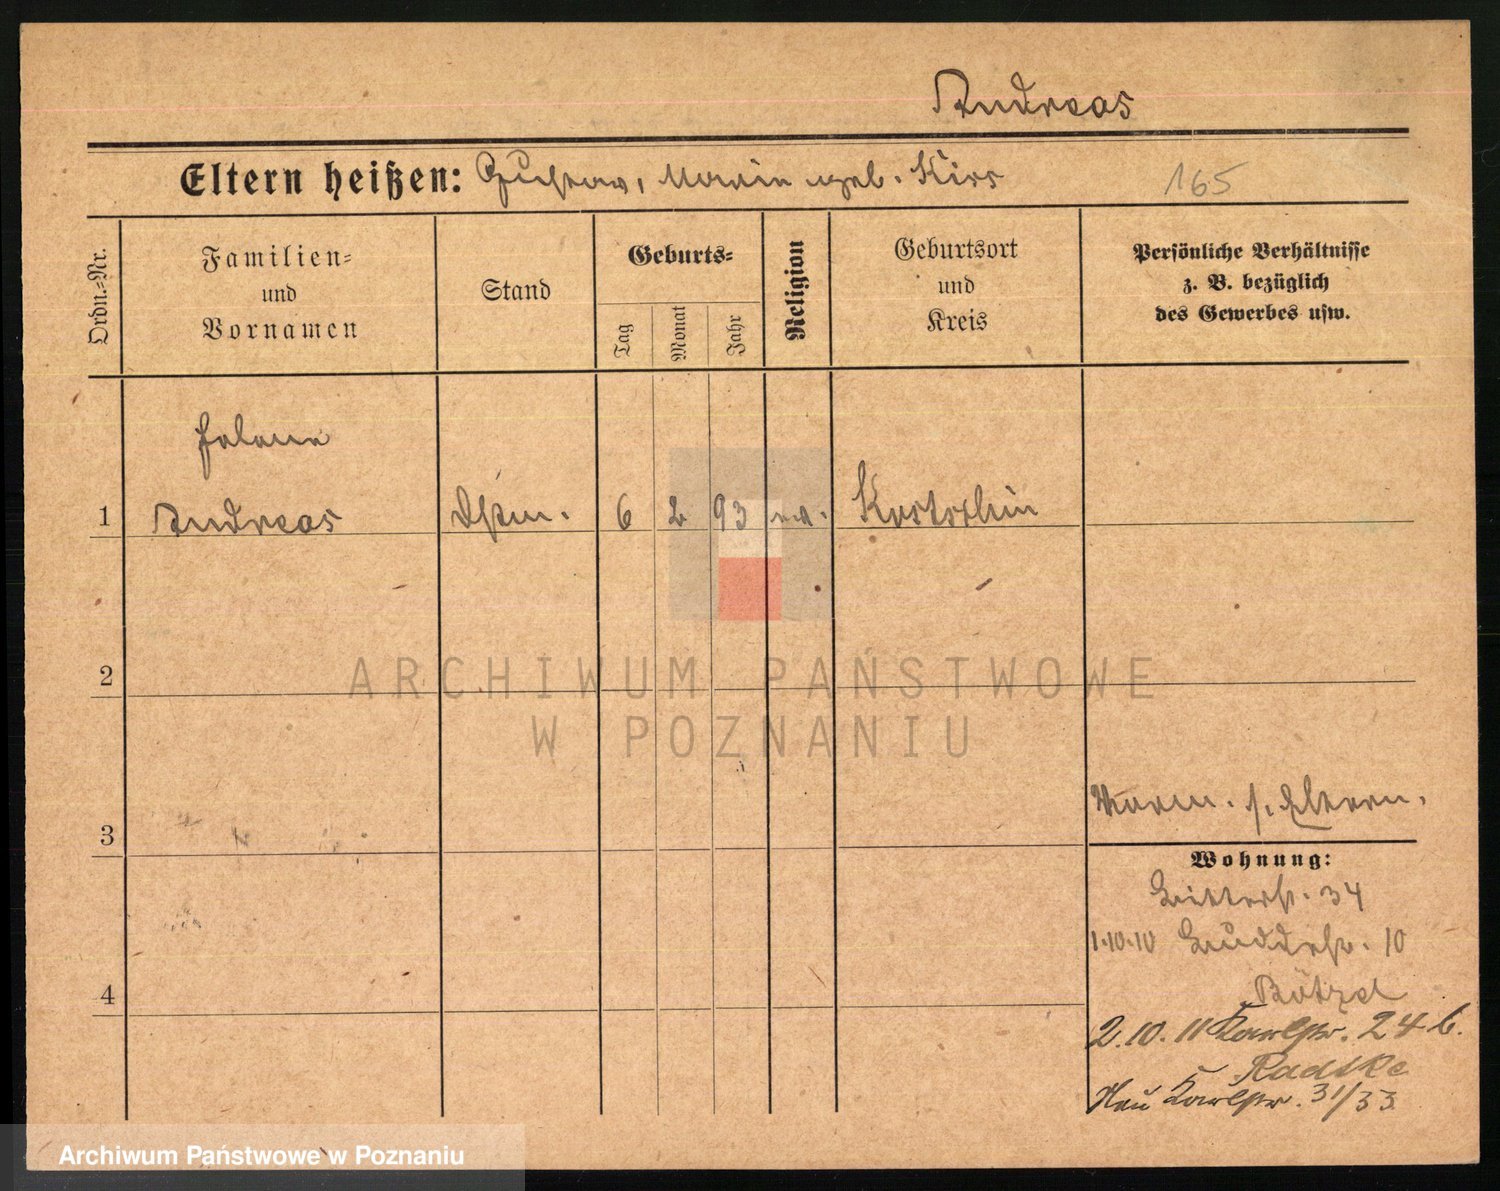 Andreas
Eltern heißen: Gustav, Marie geb. Kirs
165
Ordn.-Nr.
Familien- und Vornamen
Stand
Geburts-
Tag
Monat
Jahr
Religion
Geburtsort und Kreis
Persönliche Verhältnisse z. B. bezüglich des Gewerbes usw.
Helene
1 Andreas
6 2 93 ev. Kostschin
2
ARCHIWUM PAŃSTWOWE
W POZNANIU
3
Verm. s. Eltern.
Wohnung:
Ritterstr. 34
1.10.10 10
Bötzel
2.10.11 Karlstr. 24 b.
Radtke
Neu Karlstr. 31/33
4
Archiwum Państwowe w Poznaniu